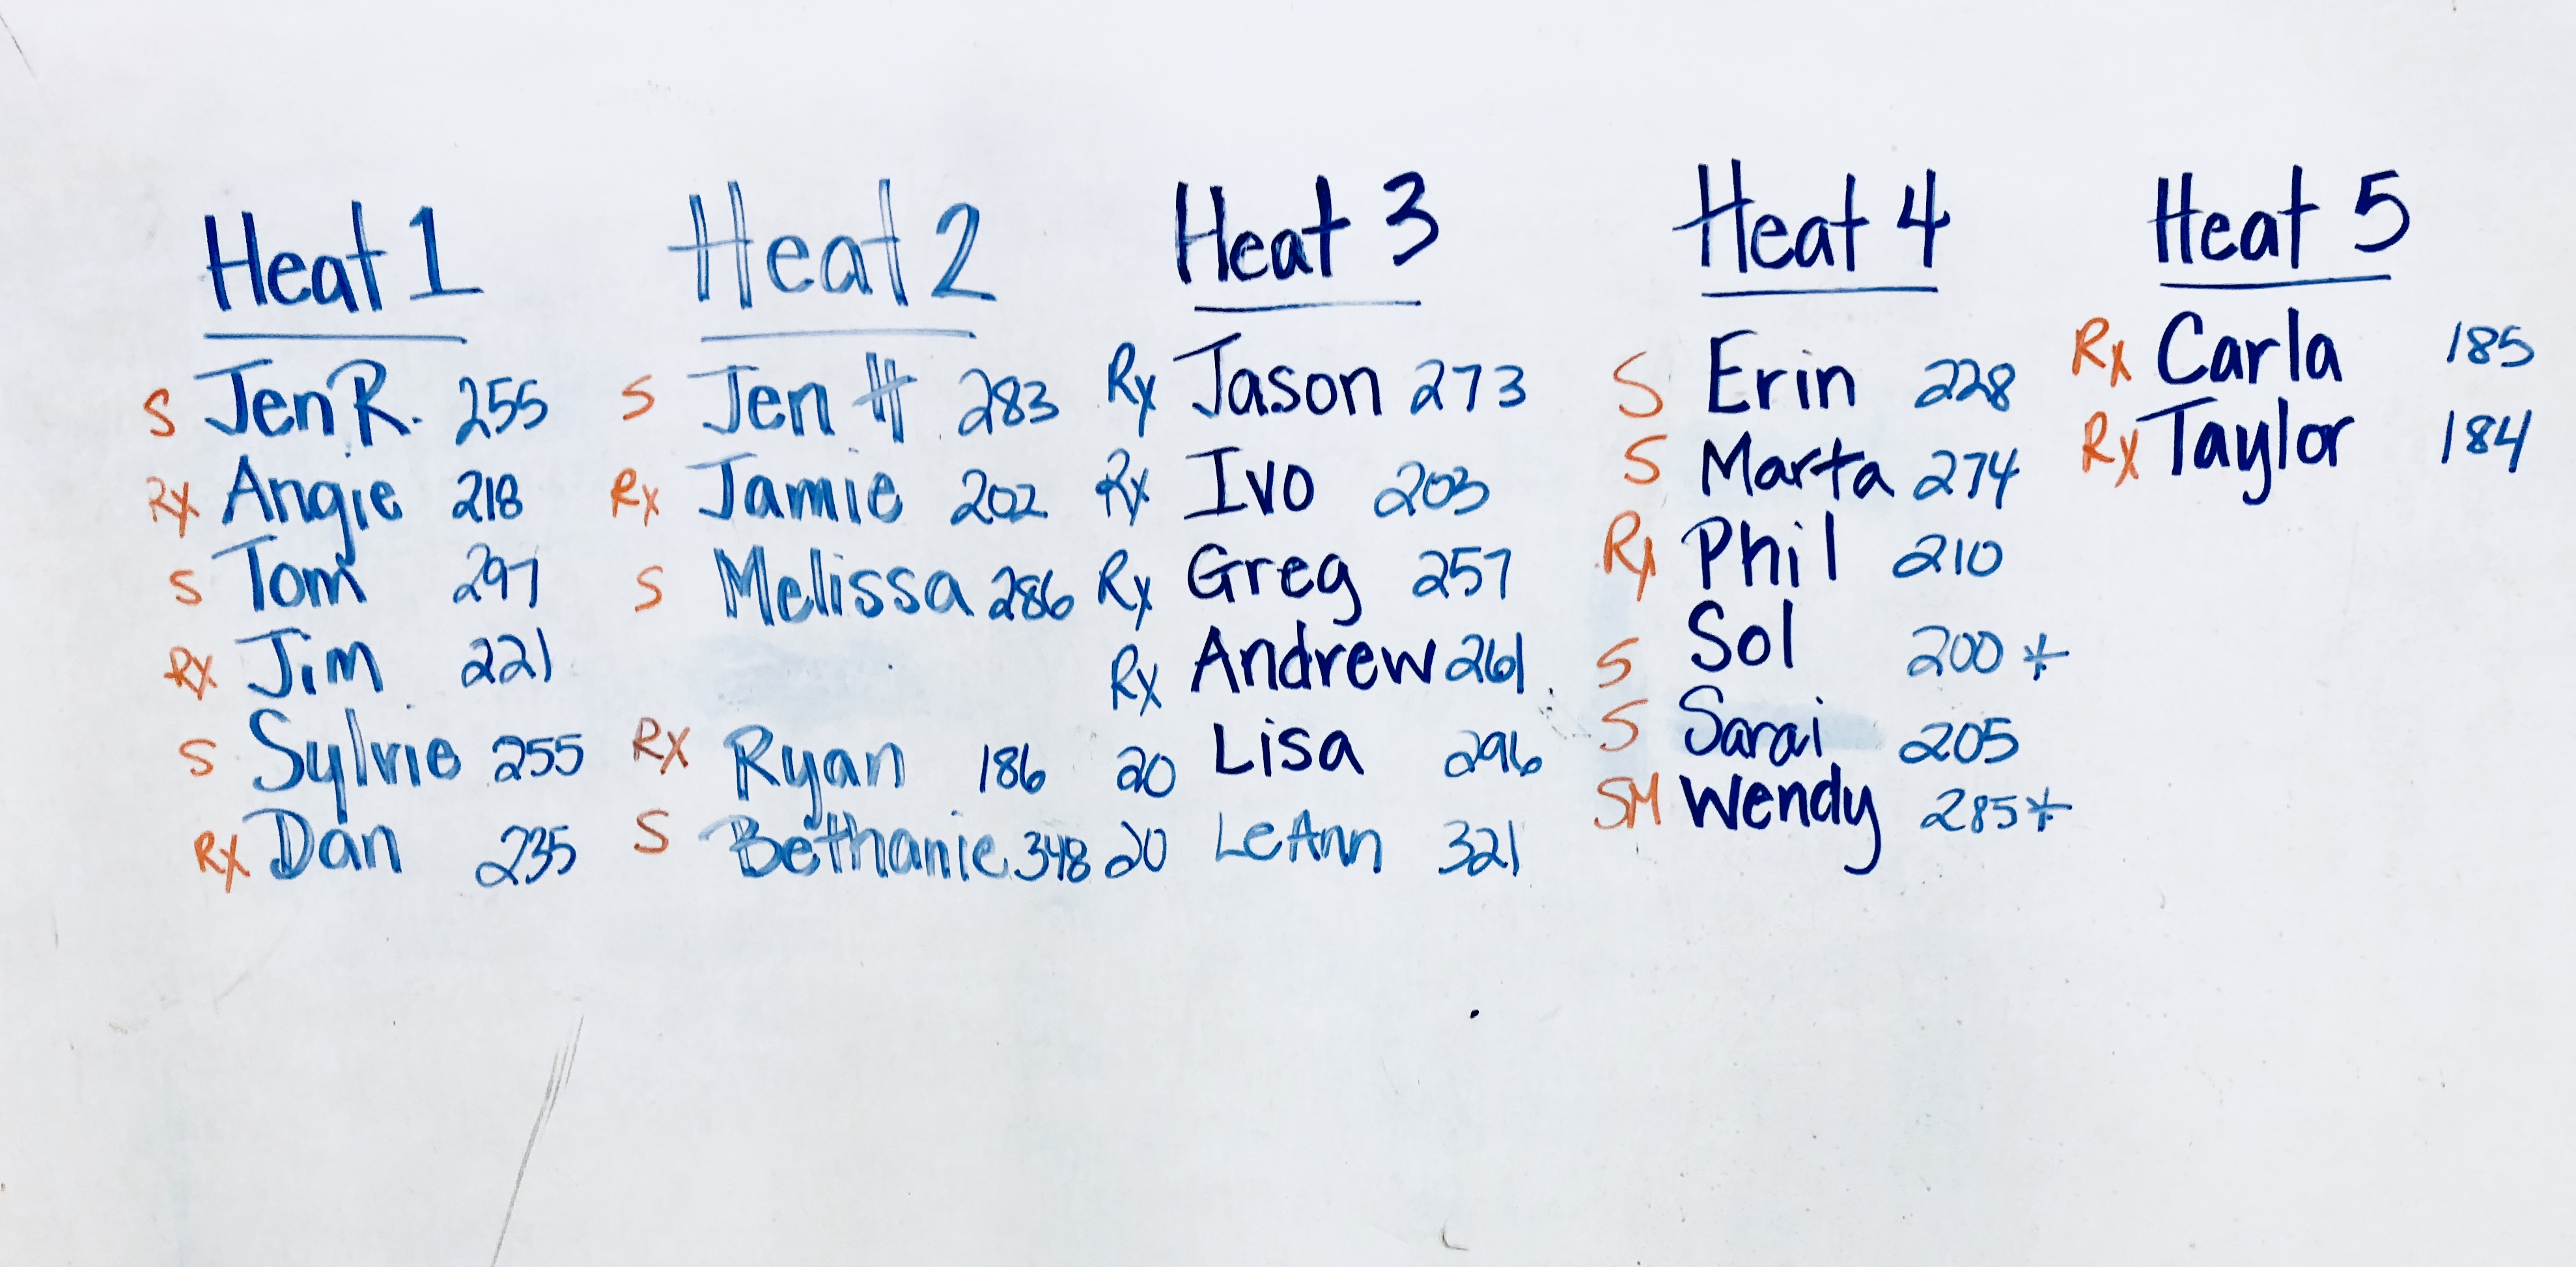 Heat 1
S Jen R. 255
Rx Angie 218
S Tom 297
Rx Jim 221
S Sylvie 255
Rx Dan 235
Heat 2
S Jen H 283
Rx Jamie 202
S Melissa 286
Rx Ryan 186
S Bethanie 348
Heat 3
Rx Jason 273
Rx Ivo 203
Rx Greg 257
Rx Andrew 261
20 Lisa 296
20 LeAnn 321
Heat 4
S Erin 228
S Marta 274
Rx Phil 210
S Sol 200 *
S Sarai 205
SM Wendy 285 *
Heat 5
Rx Carla 185
Rx Taylor 184